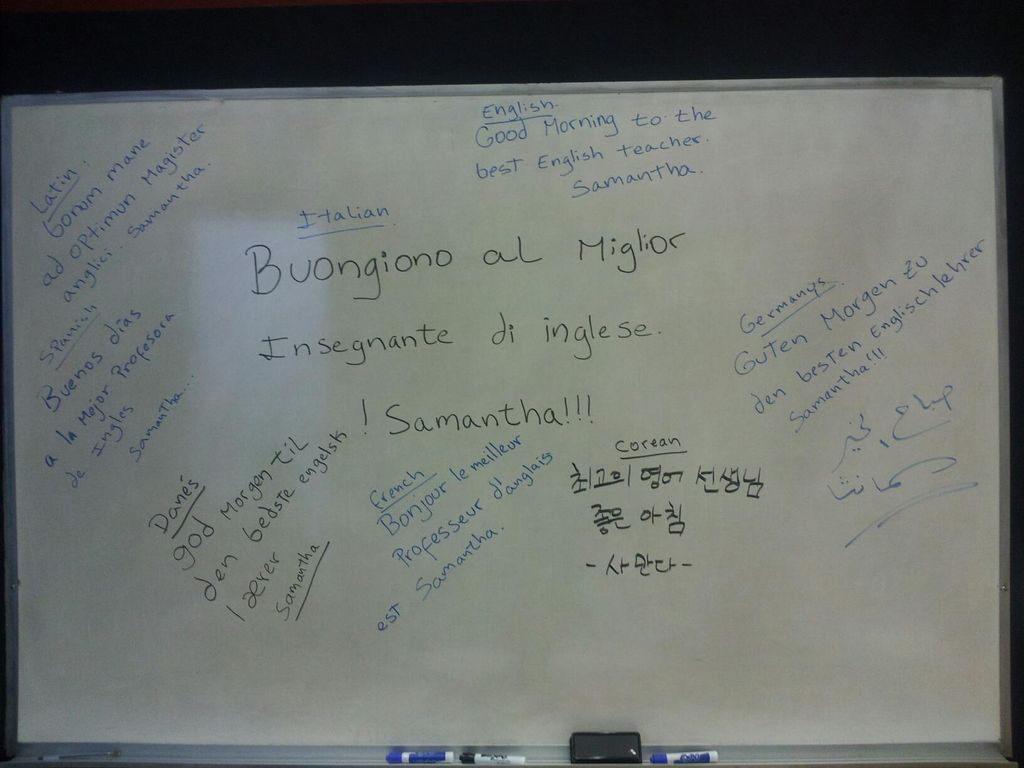 English.
Good Morning to the
best English teacher.
Samantha.
Latin:
bonum mane
ad optimum Magister
anglici. Samantha.
Italian
Buongiono al Miglior
Insegnante di inglese.
! Samantha!!!
Spanish
Buenos días
a la Mejor Profesora
de Ingles
Samantha...
Germanys
Guten Morgen zu
den besten Englischlehrer
Samantha!!!
صباح الخير
سمانثا
Danés
god Morgen til
den bedste engelsk
lærer
Samantha
french
Bonjour le meilleur
Professeur d'anglais
est Samantha.
Corean
최고의 영어 선생님
좋은 아침
- 사만다 -